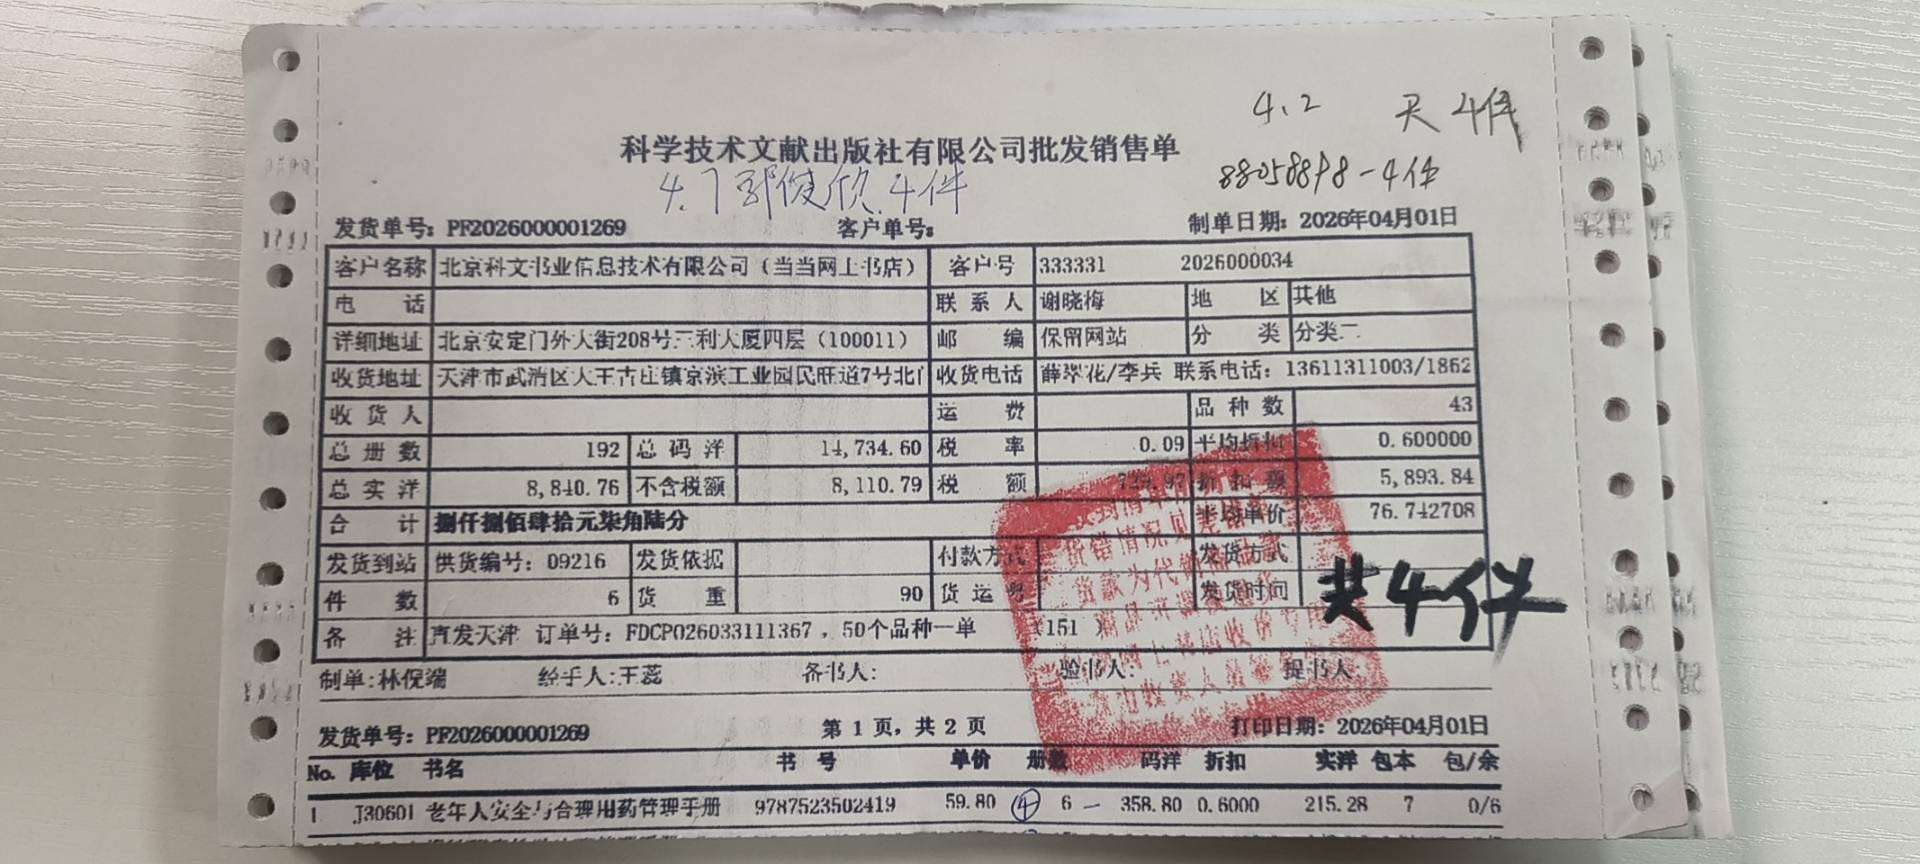 4.2 天4件
科学技术文献出版社有限公司批发销售单
4.7 郭俊欣.4件
88058898-4件
发货单号：PF2026000001269 客户单号： 制单日期：2026年04月01日
客户名称 北京科文书业信息技术有限公司（当当网上书店） 客户号 333331 2026000034
电话 联系人 谢晓梅 地区 其他
详细地址 北京安定门外大街208号三利大厦四层（100011） 邮编 保留网站 分类 分类二
收货地址 天津市武清区大王古庄镇京滨工业园民旺道7号北门 收货电话 薛翠花/李兵 联系电话：13611311003/1862
收货人 运费 品种数 43
总册数 192 总码洋 14,734.60 税率 0.09 平均折扣 0.600000
总实洋 8,840.76 不含税额 8,110.79 税额 729.97 折扣额 5,893.84
合计 捌仟捌佰肆拾元柒角陆分 平均单价 76.742708
发货到站 供货编号：09216 发货依据 付款方式 发货方式
件数 6 货重 90 货运号 发货时间
共4件
备注 直发天津 订单号：FDCP026033111367，50个品种一单 （151 ）
制单:林倪端 经手人:王蕊 备书人: 验书人: 提书人
发货单号：PF2026000001269 第 1 页，共 2 页 打印日期：2026年04月01日
No. 库位 书名 书号 单价 册数 码洋 折扣 实洋 包本 包/余
1 J30601 老年人安全与合理用药管理手册 9787523502419 59.80 ④ 6 — 358.80 0.6000 215.28 7 0/6